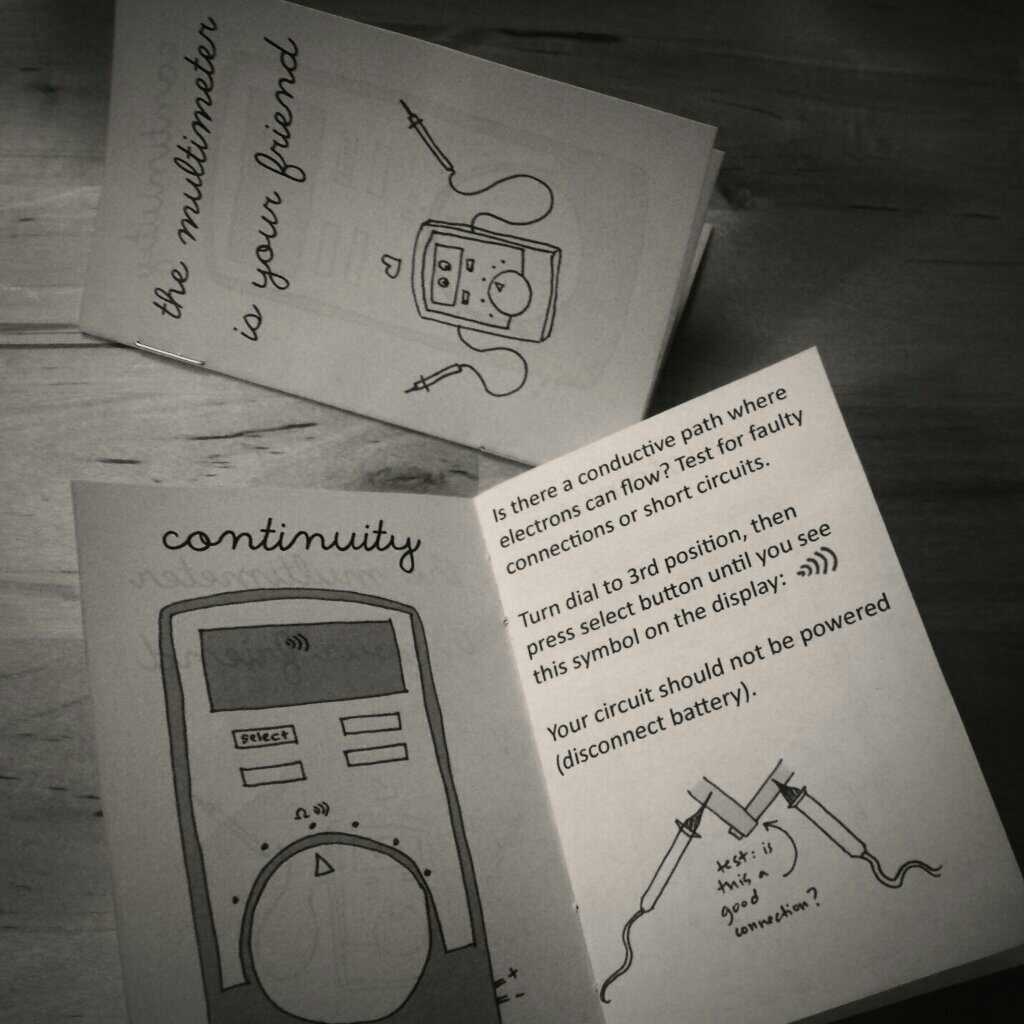 the multimeter
is your friend
continuity
select
Ω
Is there a conductive path where
electrons can flow? Test for faulty
connections or short circuits.
Turn dial to 3rd position, then
press select button until you see
this symbol on the display:
Your circuit should not be powered
(disconnect battery).
test: is
this a
good
connection?
+
-